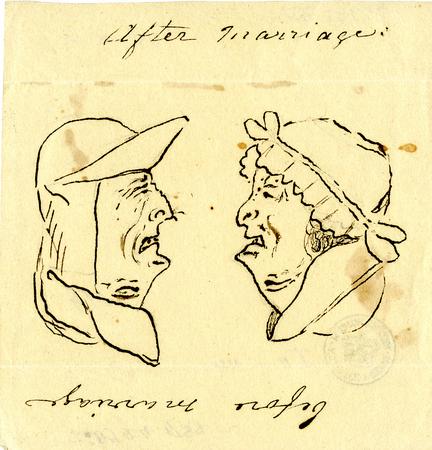 After marriage:
before marriage